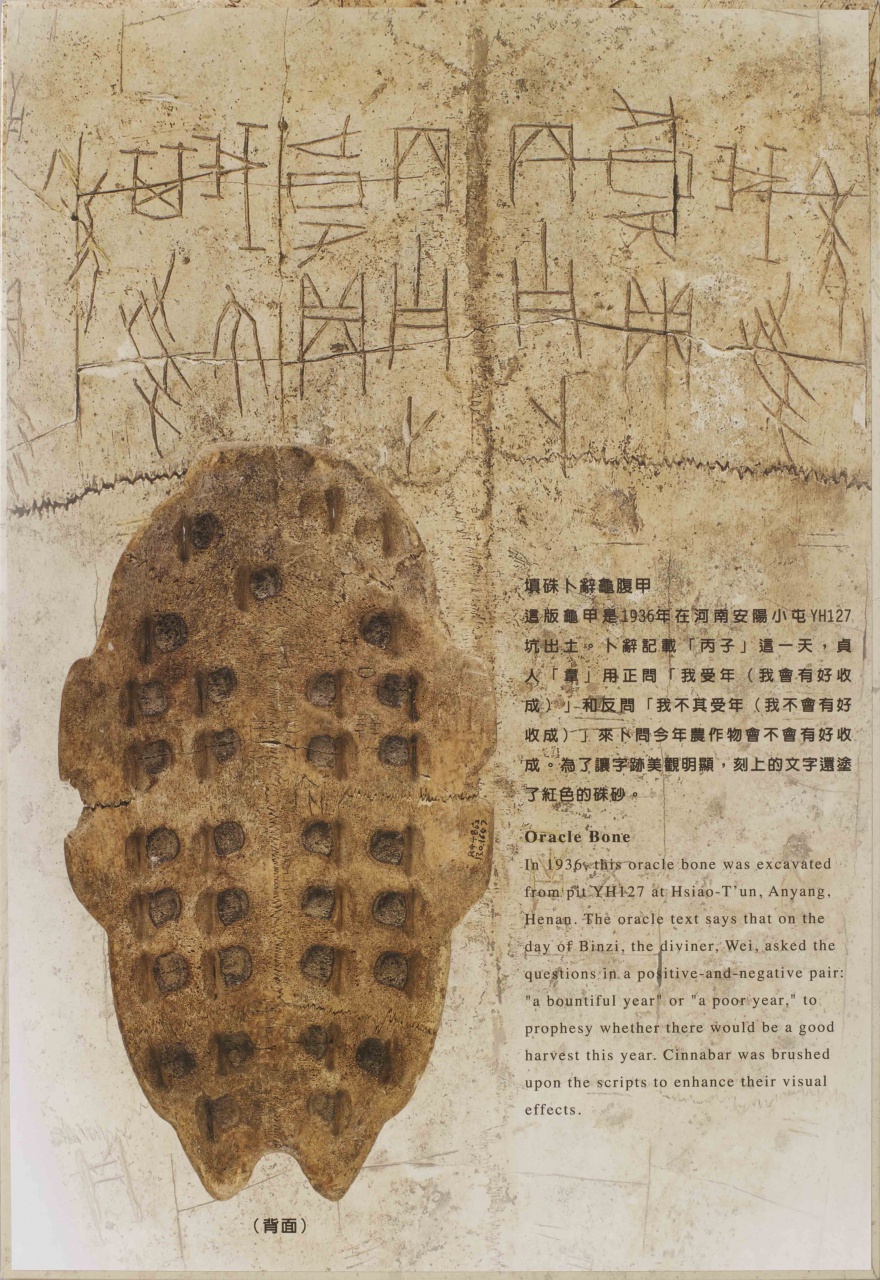 填硃卜辭龜腹甲
這版龜甲是1936年在河南安陽小屯YH127
坑出土。卜辭記載「丙子」這一天，貞
人「韋」用正問「我受年（我會有好收
成）」和反問「我不其受年（我不會有好
收成）」來卜問今年農作物會不會有好收
成。為了讓字跡美觀明顯，刻上的文字還塗
了紅色的硃砂。
Oracle Bone
In 1936, this oracle bone was excavated
from pit YH127 at Hsiao-T'un, Anyang,
Henan. The oracle text says that on the
day of Binzi, the diviner, Wei, asked the
questions in a positive-and-negative pair:
"a bountiful year" or "a poor year," to
prophesy whether there would be a good
harvest this year. Cinnabar was brushed
upon the scripts to enhance their visual
effects.
（背面）